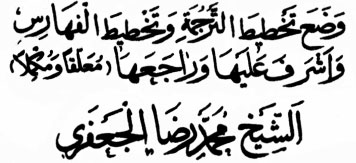 وَضَعَ تَخْطِيطَ التَّرْجَمَةِ وَتَخْطِيطَ الْفَهَارِسِ
وَأَشْرَفَ عَلَيْهَا وَرَاجَعَهَا (مُعَلِّقًا وَمُكَمِّلًا)
الشَّيْخ مُحَمَّد رِضَا الْجَعْفَرِي